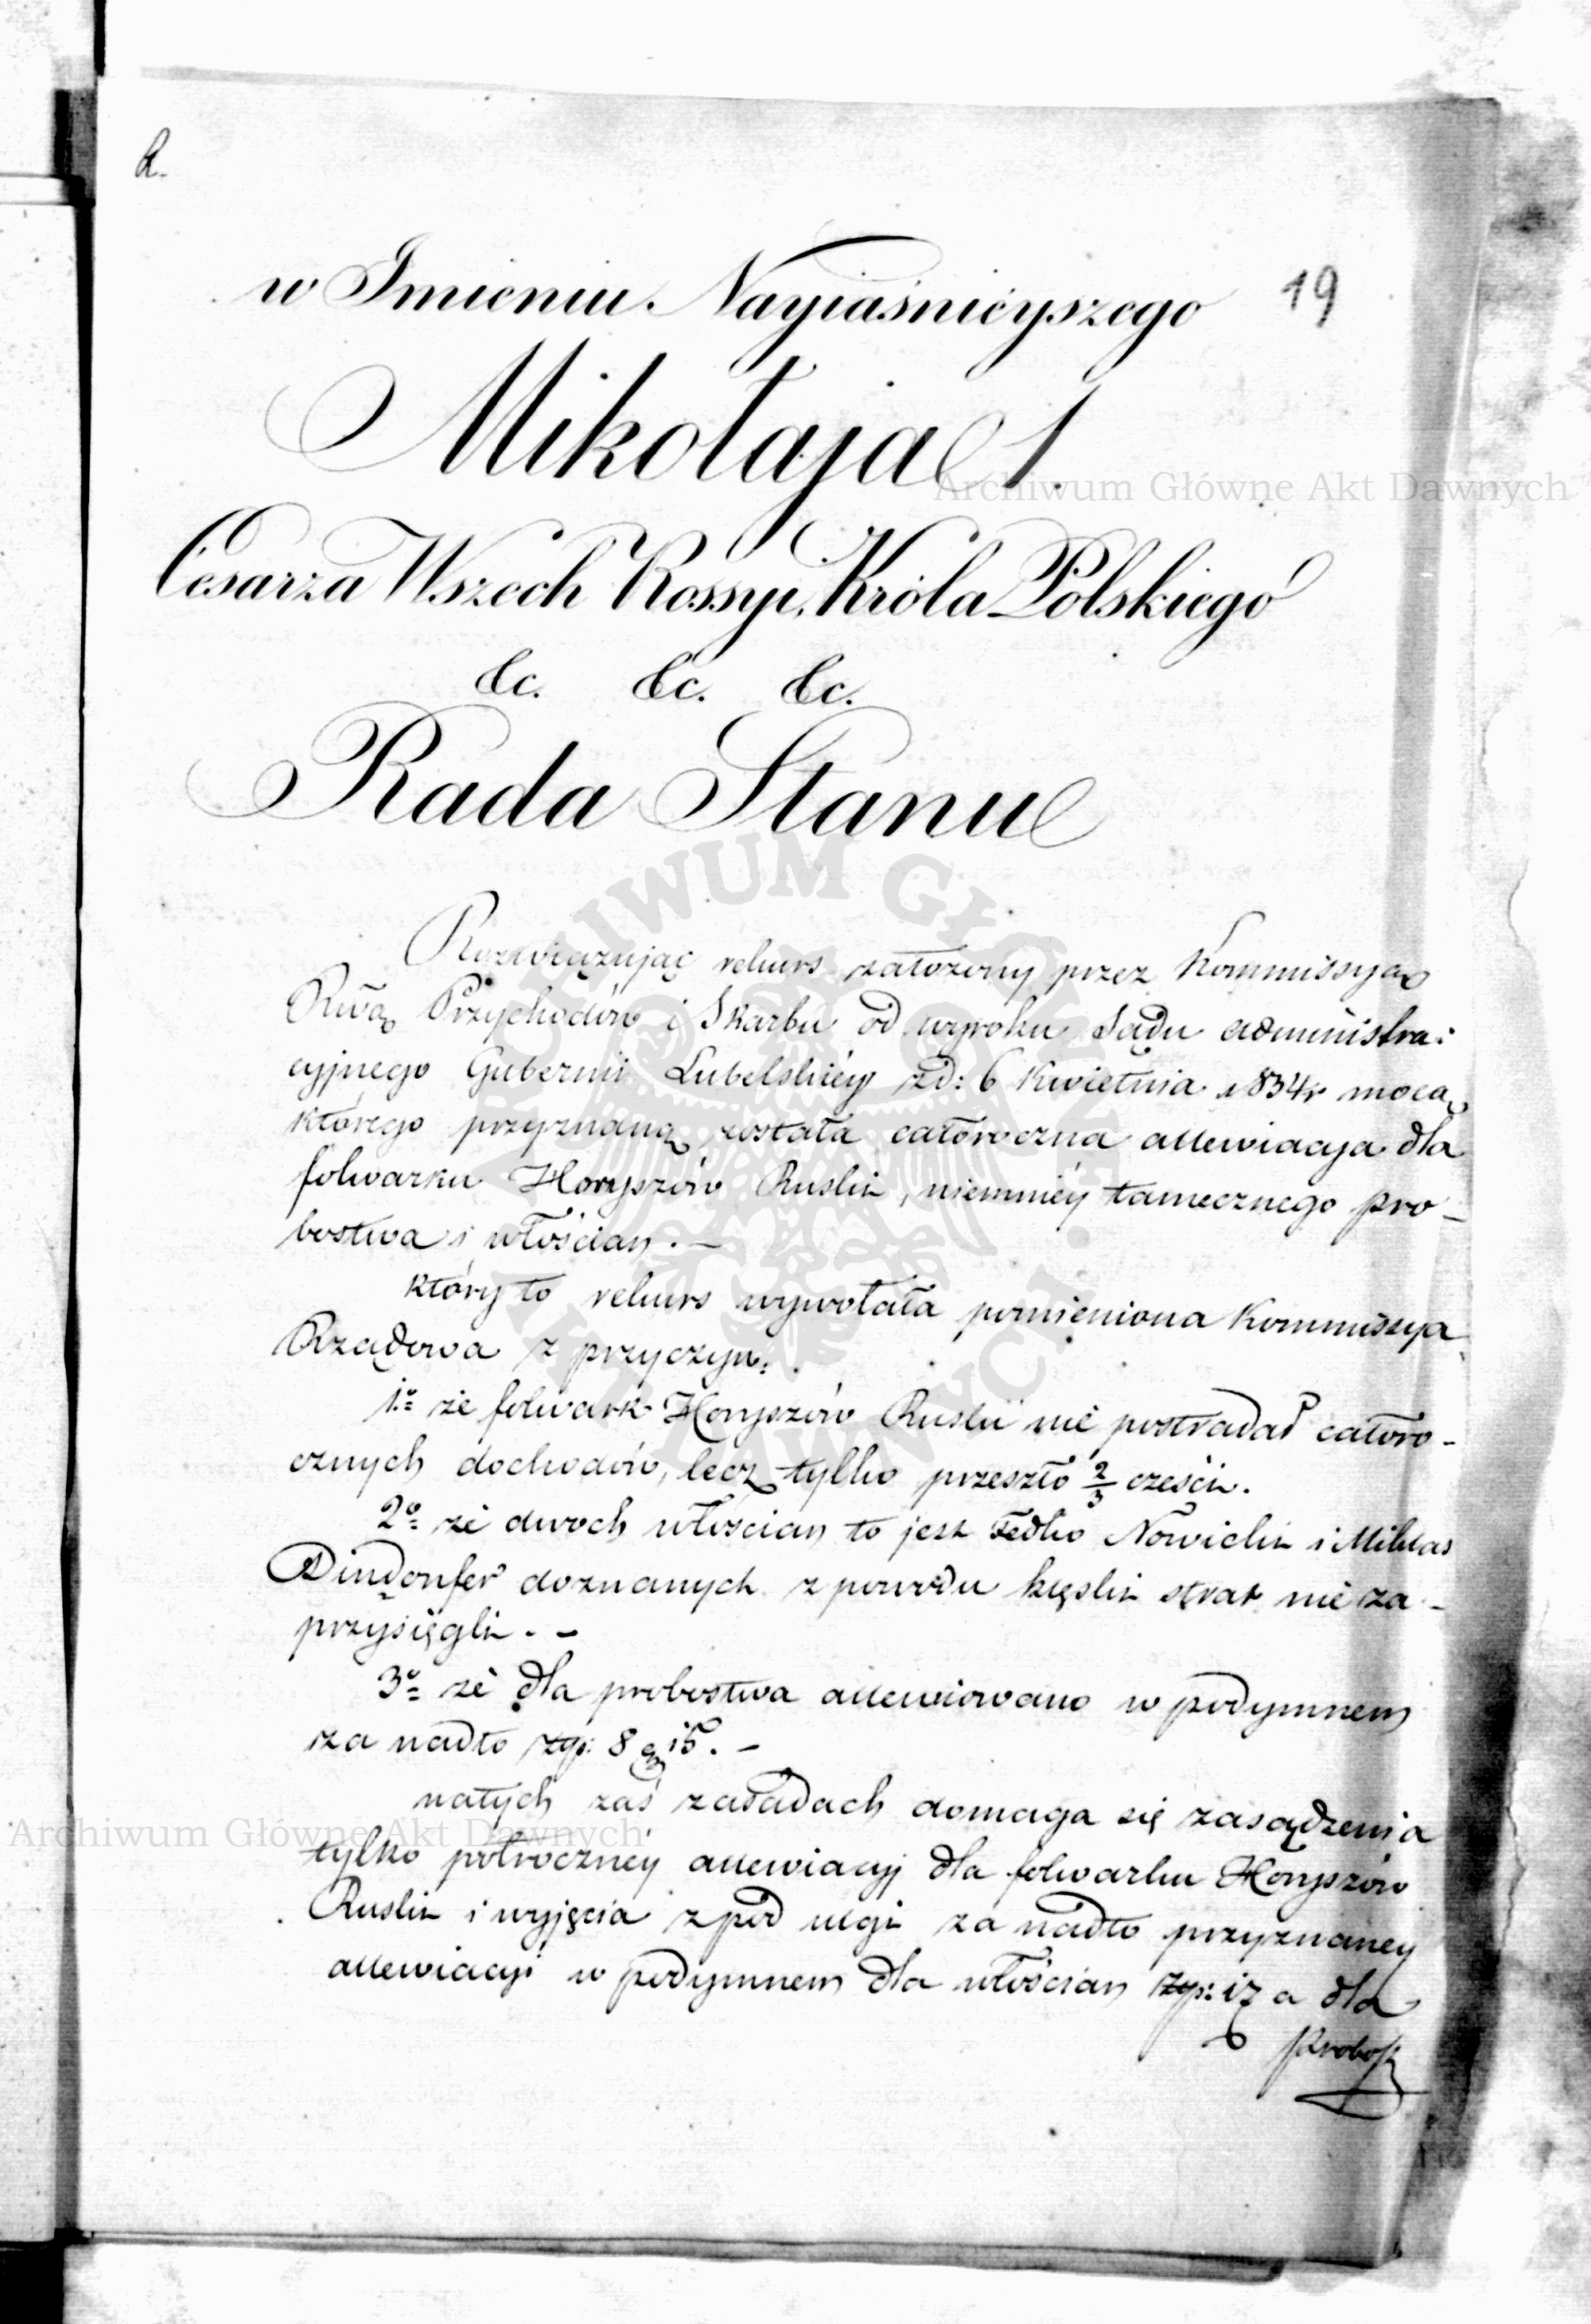 R.
19
w Imieniu Nayiaśnieyszego
Mikołaja I.
Cesarza Wszech Rossyi, Króla Polskiego
&c. &c. &c.
Rada Stanu
Rozwiązując rekurs założony przez Kommissyą
Rwą Przychodów i Skarbu od wyroku Sądu administra:
cyjnego Gubernii Lubelskiéy zd: 6 Kwietnia 1834r mocą
którego przyznaną została całoroczna allewiacya dla
folwarku Horyszów Ruski, niemniéy tamecznego pro-
bostwa i włościan. —
który to rekurs wywołała pomieniona Kommissya
Rządowa z przyczyn:
1º że folwark Horyszów Ruski nie postradał całoro-
cznych dochodów, lecz tylko przeszło 2/3 części.
2º że dwoch włościan to jest Fedko Nowicki i Miklas
Dindorfer doznanych z powodu klęski strat nie za-
przysięgli. –
3º że dla probostwa allewiowano w podymnem
za nadto złp: 8 g 15. –
natych zaś zasadach domaga się zasądzenia
tylko półrocznéy allewiacyi dla folwarku Horyszów
Ruski i wyjęcia zpod ulgi za nadto przyznaney
allewiacyi w podymnem dla włościan złp: 17 a dla
Probos
Archiwum Główne Akt Dawnych
Archiwum Główne Akt Dawnych
ARCHIWUM GŁÓWNE AKT DAWNYCH